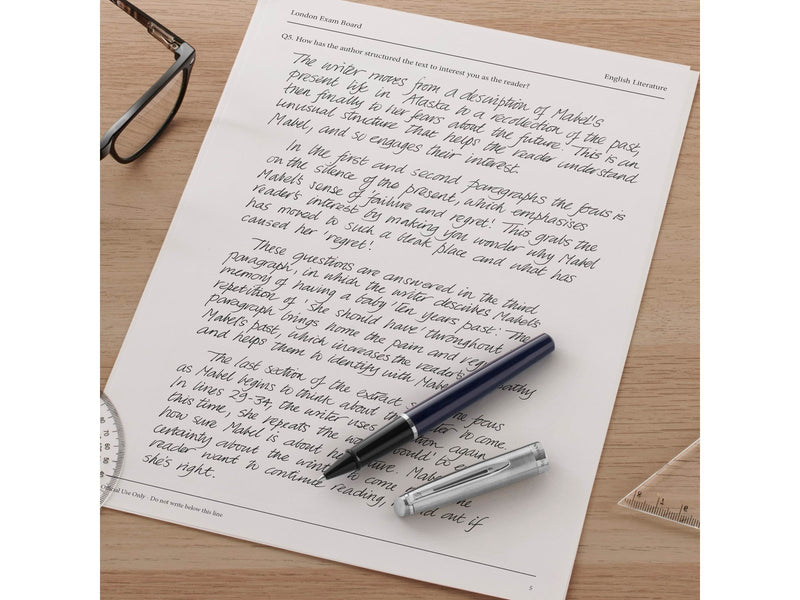 London Exam Board
English Literature
Q5. How has the author structured the text to interest you as the reader?
The writer moves from a description of Mabel's
present life in Alaska to a recollection of the past,
then finally to her fears about the future. This is an
unusual structure that helps the reader understand
Mabel, and so engages their interest.
In the first and second paragraphs the focus is
on the silence of the present, which emphasises
Mabel's sense of 'failure and regret'. This grabs the
reader's interest by making you wonder why Mabel
has moved to such a bleak place and what has
caused her 'regret'.
These questions are answered in the third
paragraph, in which the writer describes Mabel's
memory of having a baby 'ten years past'. The
repetition of 'she should have' throughout
paragraph brings home the pain and
Mabel's past, which increases the reader's
and helps them to identify with Mabel.
The last section of the extract focus
as Mabel begins to think about the to come.
In lines 29-34, the writer uses again
this time, she repeats the 'would'
how sure Mabel is about
certainty about the to come
reader want to continue reading, out if
she's right.
Official Use Only . Do not write below this line
5